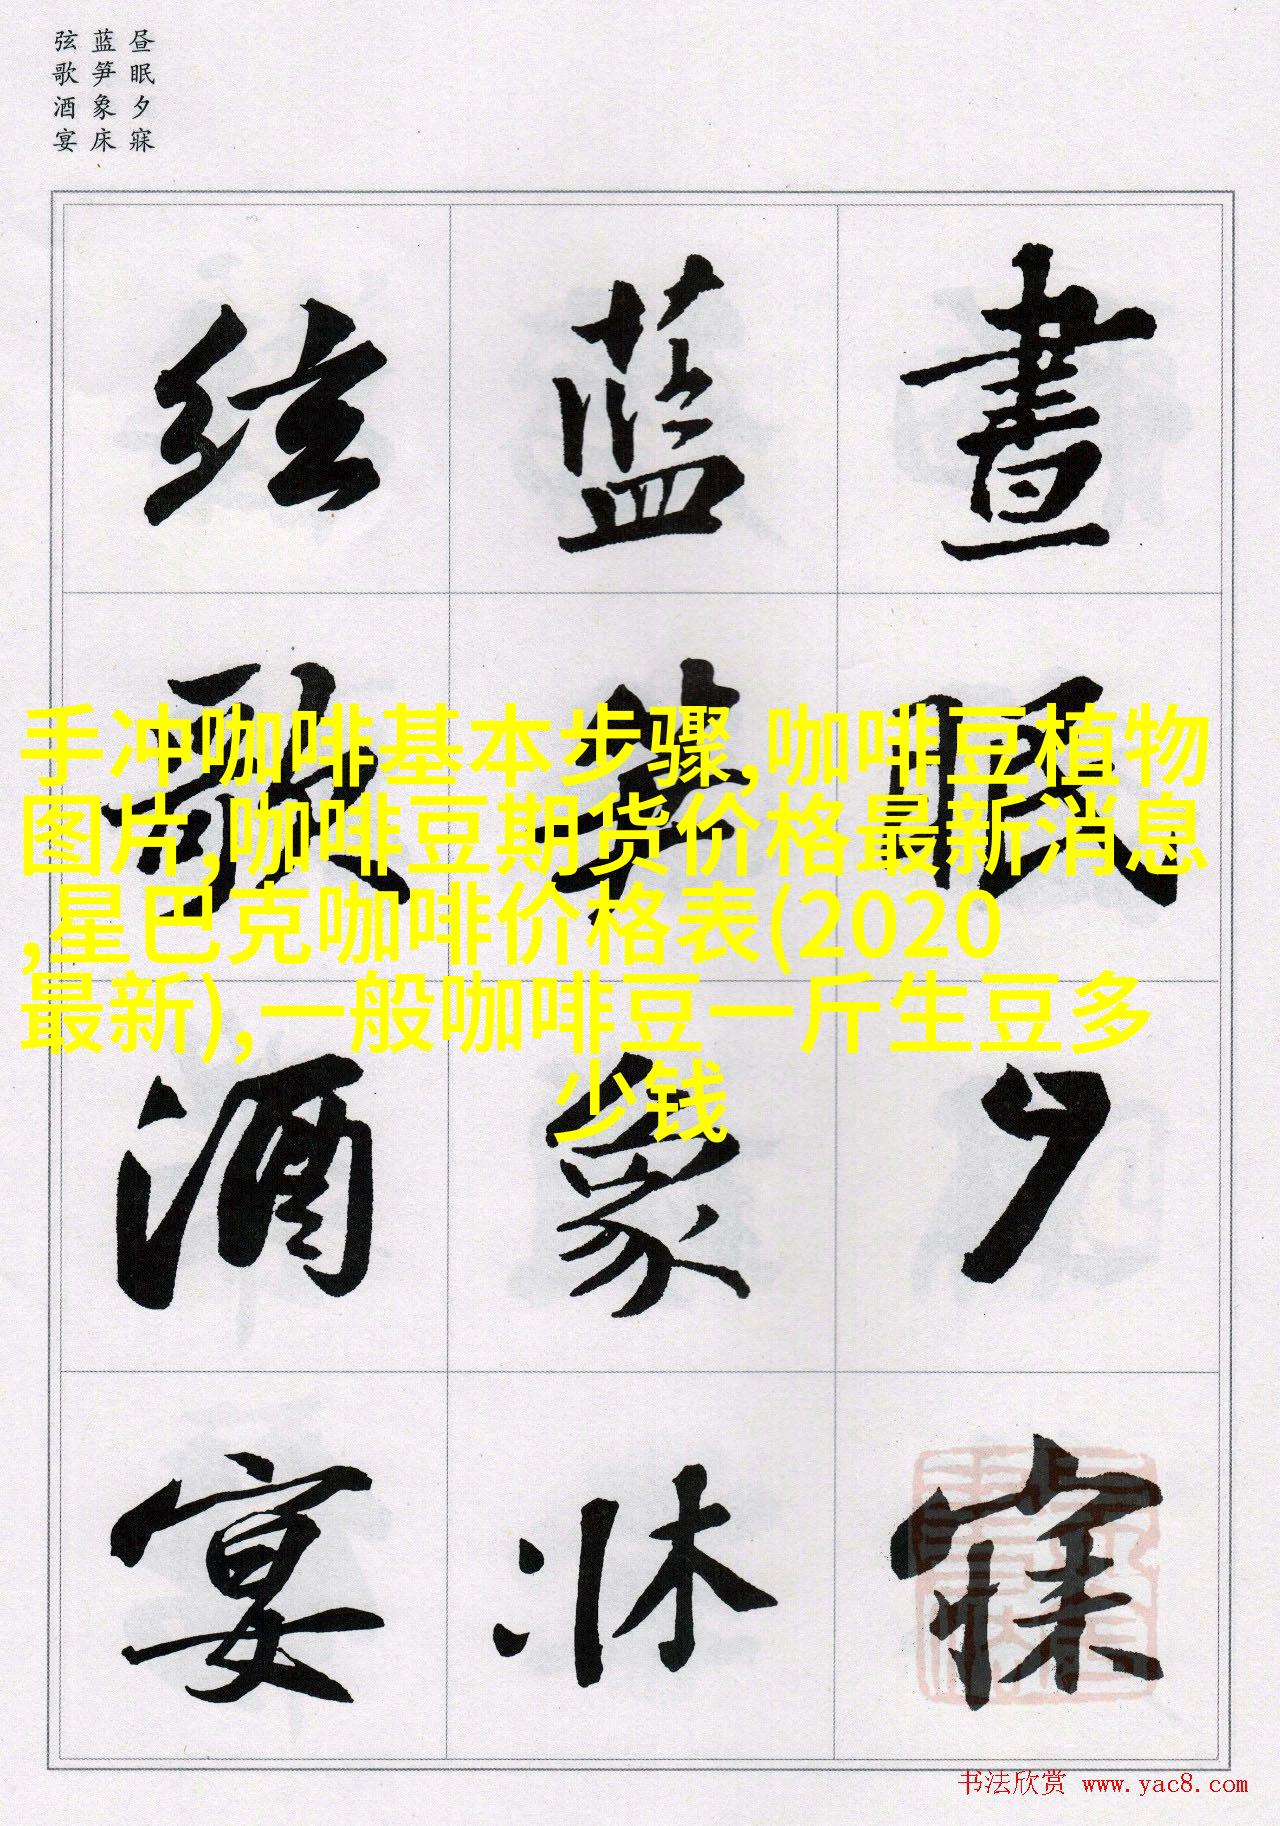 昼眠夕寐
蓝笋象床
弦歌酒宴
晝眠夕寐
蓝笋象床
弦歌酒宴
手冲咖啡基本步骤,咖啡豆植物
图片,咖啡豆期货价格最新消息
,星巴克咖啡价格表(2020
最新),一般咖啡豆一斤生豆多
少钱
书法欣赏 www.yac8.com